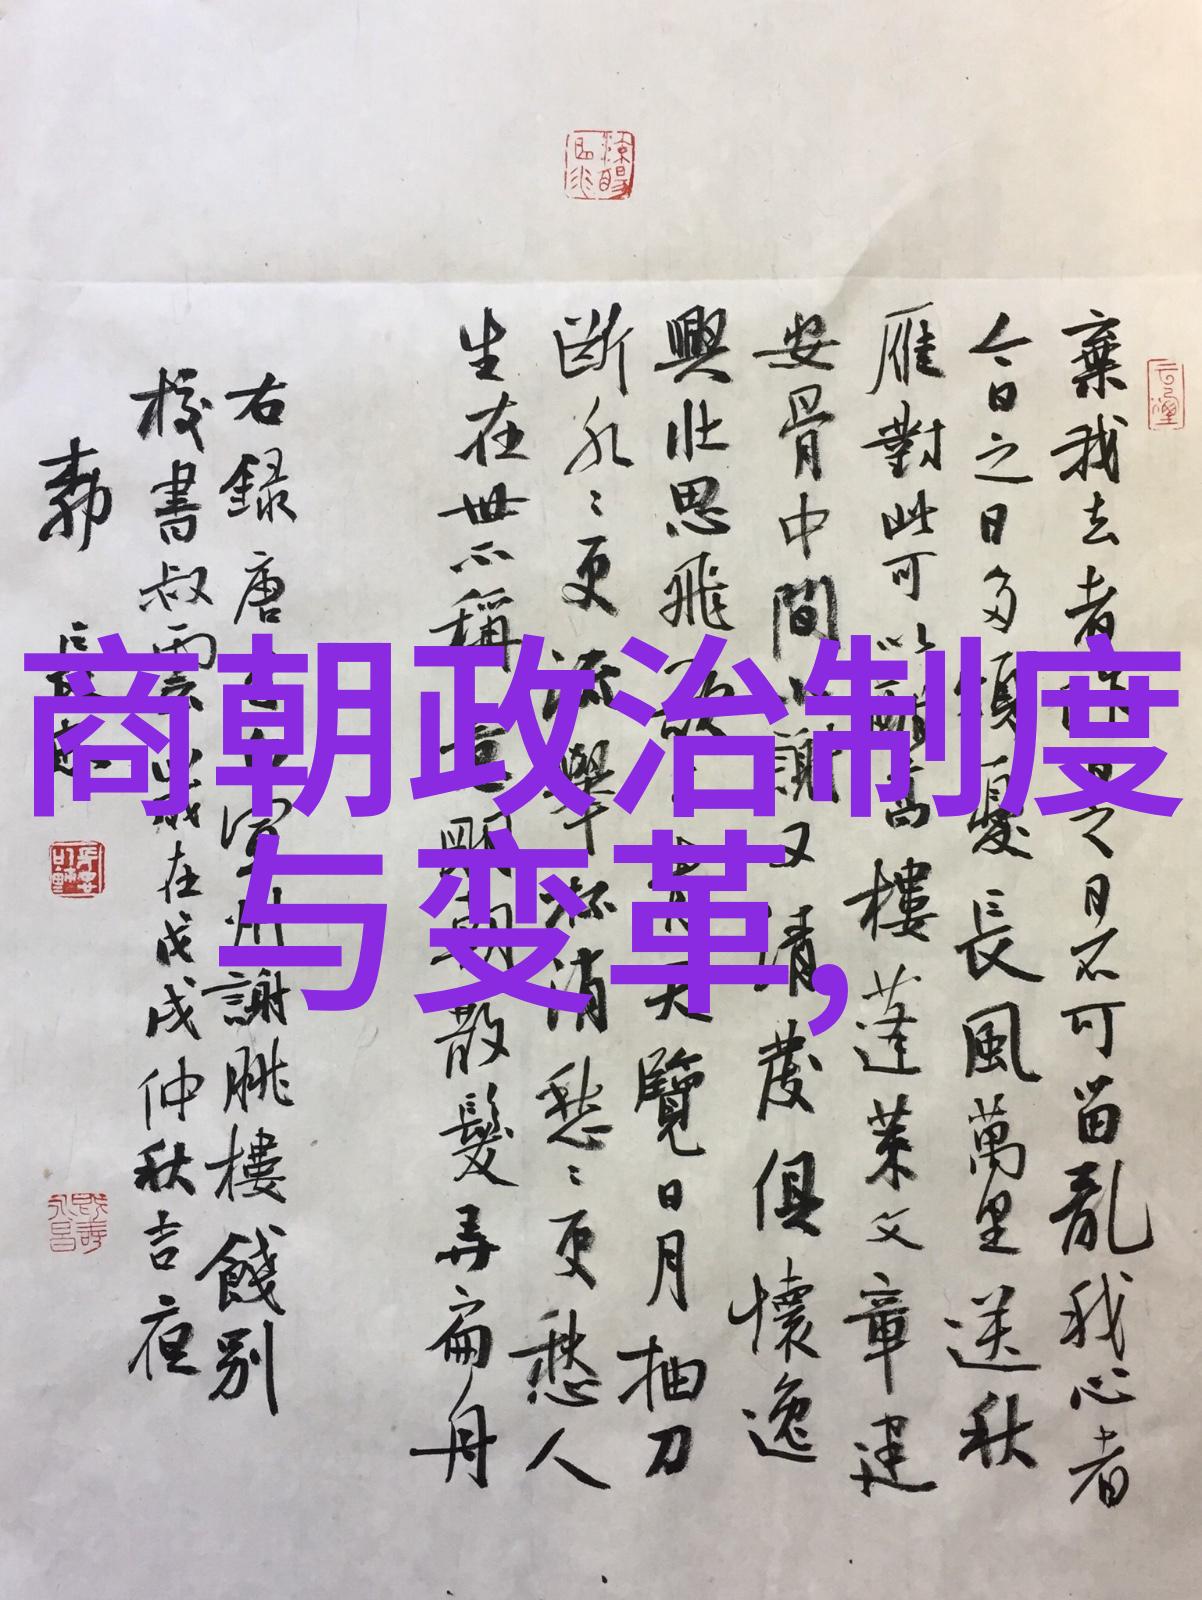 商朝政治制度
与变革,
棄我去者昨日之日不可留亂我心者
今日之日多煩憂長風萬里送秋
雁對此可以酣高樓蓬萊文章建
安骨中間小謝又清發俱懷逸
興壯思飛欲上青天覽日月抽刀
斷水〻更流舉杯消愁〻更愁人
生在世不稱意明朝散髮弄扁舟
右錄唐李白宣州謝朓樓餞別
校書叔雲歲在戊戌仲秋吉夜